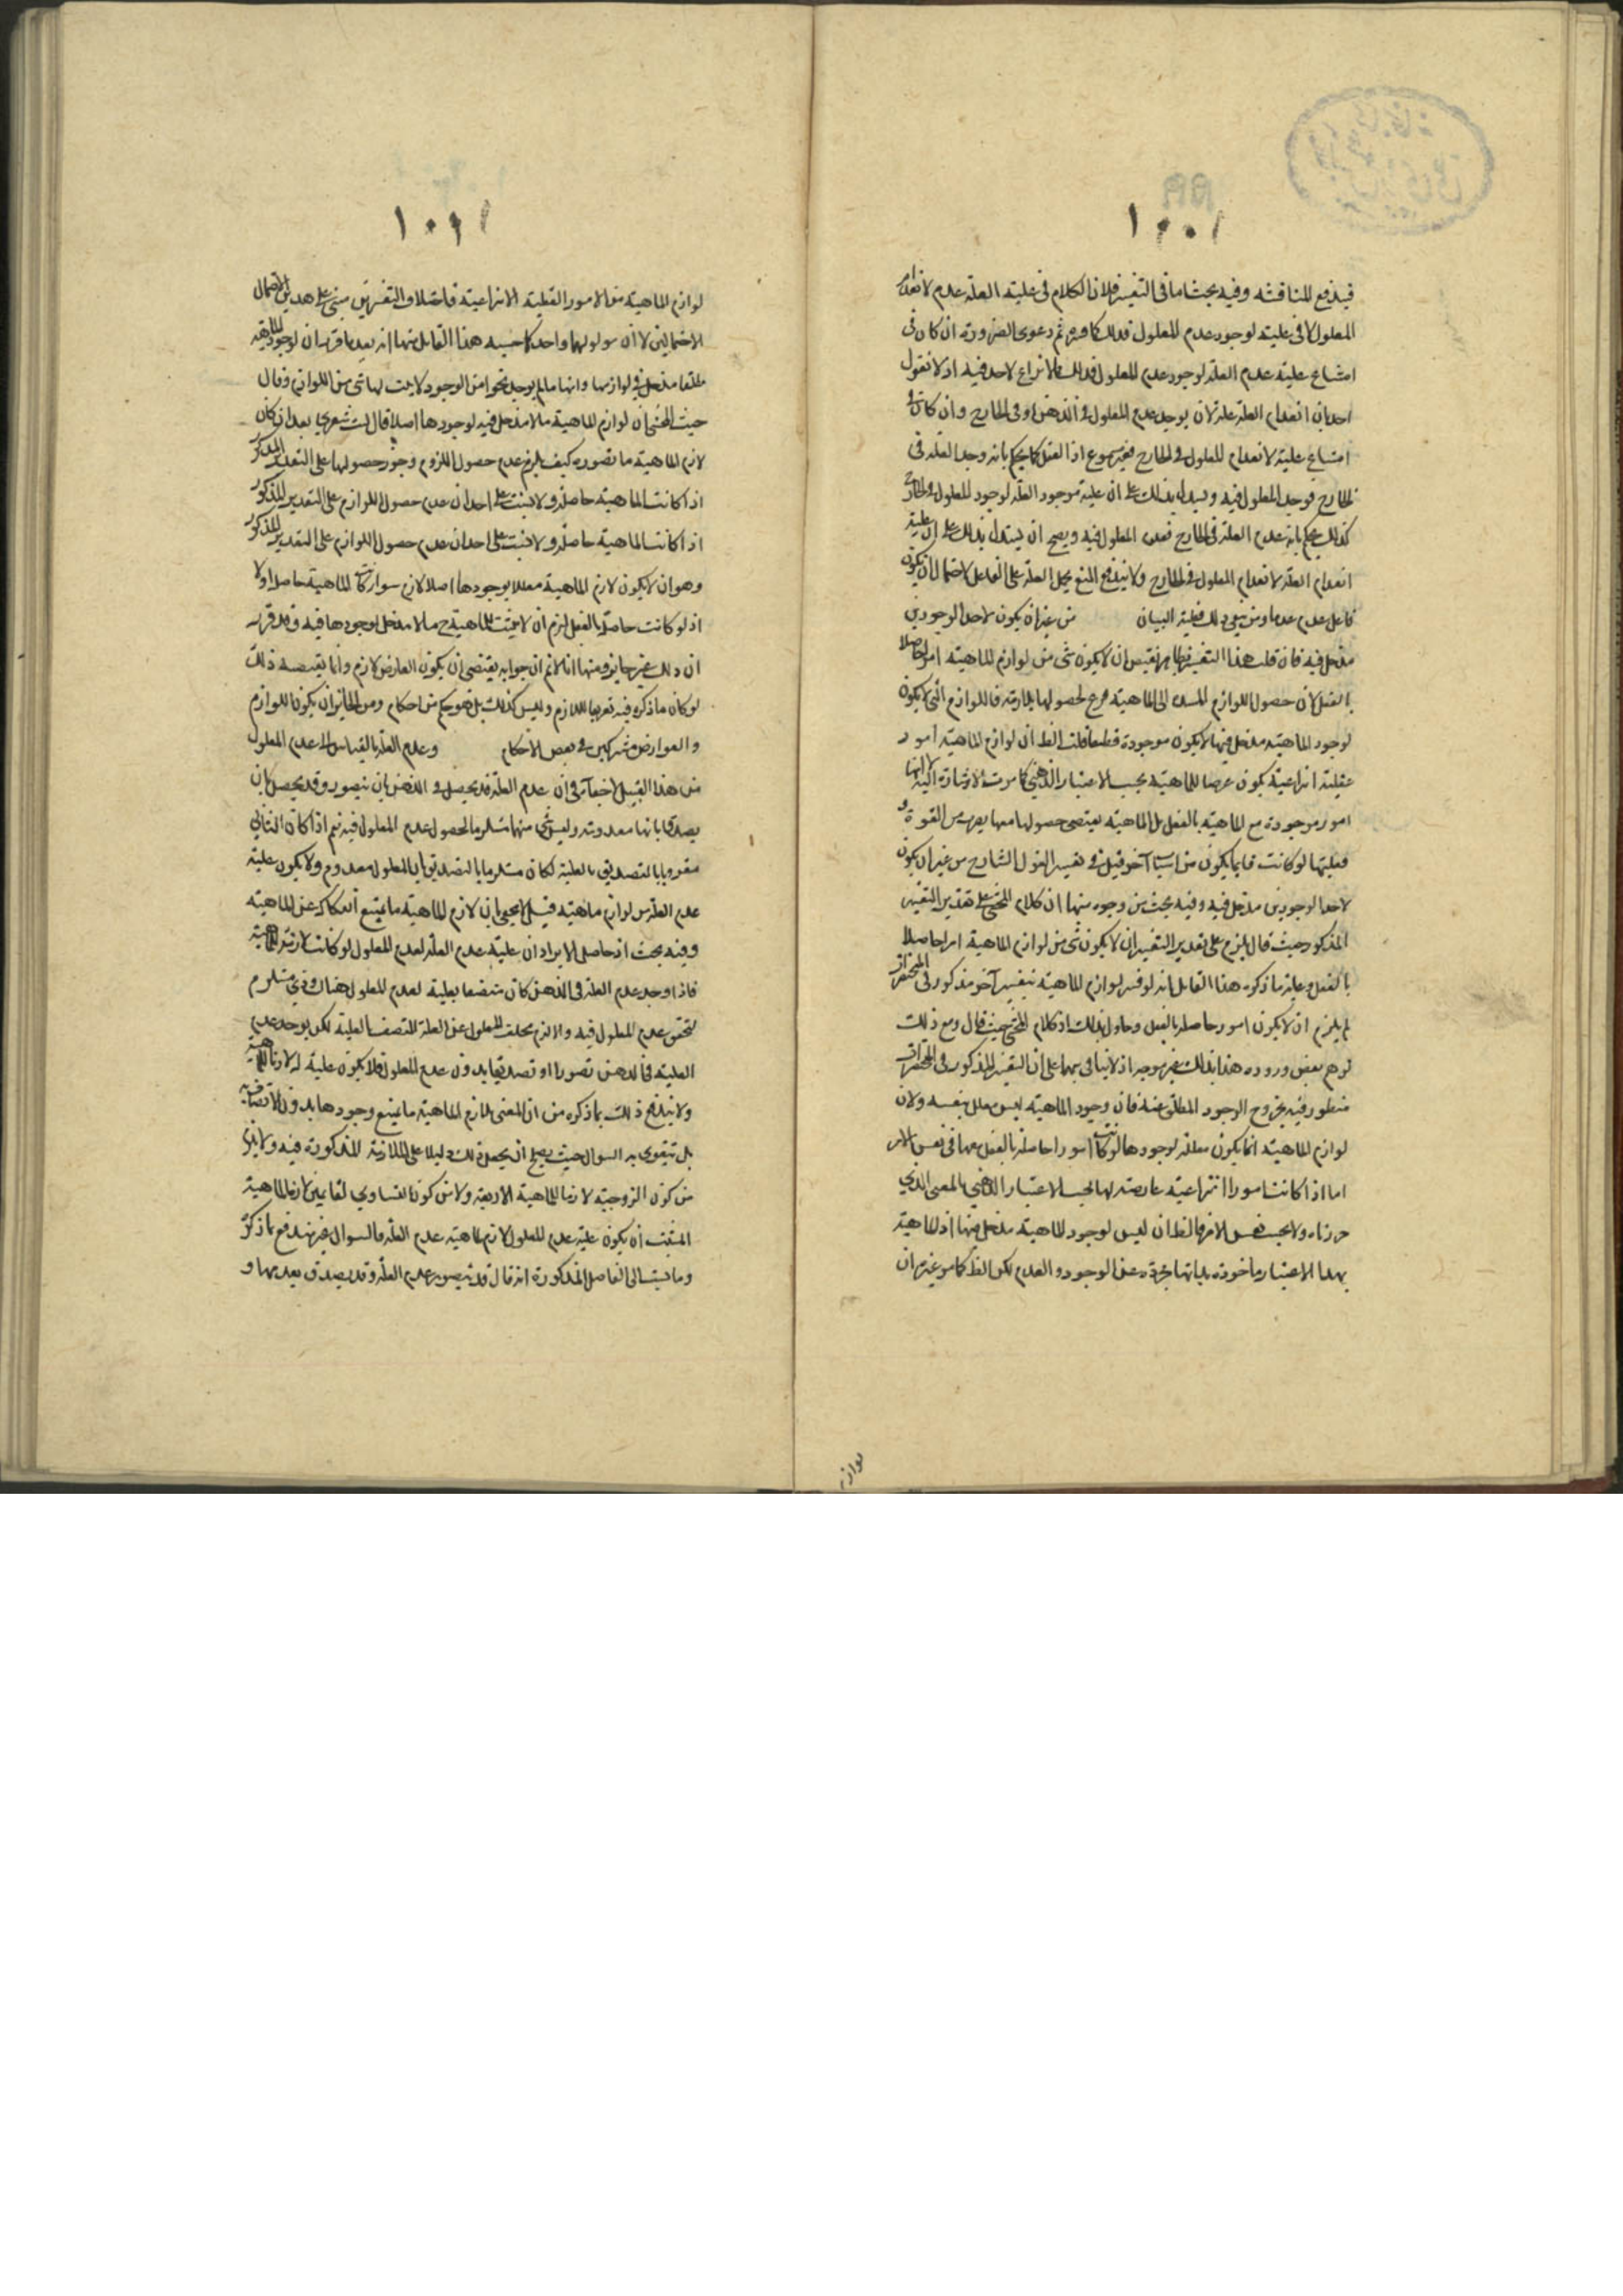 ١٠٠١
فيندفع المناقشة وفيه بحث اما في التفسير فلان الكلام في علية العلة عدم لانعدام
المعلول لا في علية لوجود عدم المعلول فذلك مكابرة ثم دعوى الضرورة ان كان في
امتناع علية عدم العلة لوجود عدم المعلول فذلك مما لا نزاع لاحد فيه اذ لا نقول
احد بان انعدام العلة علة لان يوجد عدم المعلول في الذهن او في الخارج وان كان في
امتناع علية لانعدام المعلول في الخارج فغير مسموع اذ العقل كما يحكم بانه وجد العلة في
الخارج فوجد المعلول فيه ويستدل بذلك على ان علية موجود العلة لوجود المعلول في الخارج
كذلك يحكم بانه عدم العلة في الخارج فعدم المعلول فيه ويصح ان يستدل بذلك على ان علية
انعدام العلة لانعدام المعلول في الخارج ولا يندفع المنع بحمل العلة على الفاعل لاحتمال ان يكون
فاعل عدم عدما ومن يدعي ذلك فعليه البيان من غير ان يكون لاحد الوجودين
مدخل فيه فان قلت هذا التفسير بظاهره يقتضي ان لا يكون شئ من لوازم الماهية امرا حاصلا
بالفعل لان حصول اللوازم الى الماهية فرع لحصولها فاللوازم التي لا يكون
لوجود الماهية مدخل فيها لا يكون موجودة قطعا قلت الظ ان لوازم الماهية امور
عقلية انتزاعية يكون عرضا للماهية بحسب الاعتبار الذهني كما مرت الاشارة اليه لا انها
امور موجودة مع الماهية بالفعل بل الماهية يقتضي حصولها معها بعرب من القوة و
فعليتها لو كانت فانما يكون من اسباب آخر قيل في تفسير القول الشارح من غير ان يكون
لاحد الوجودين مدخل فيه وفيه بحث من وجوه منها ان كلام المحشي على تقدير التفسير
المذكور حيث قال يلزم على تقدير التفسير ان لا يكون شئ من لوازم الماهية امرا حاصلا
بالفعل وغاية ما ذكره هذا القايل انه لو فسر لوازم الماهية بتفسير آخر مذكور في المختصرات
لم يلزم ان لا يكون امور حاصلة بالفعل وحاول بذلك اذ كلام المحشي حيث قال ومع ذلك
توهم بعض وروده هذا بذلك غير موجه اذ لا ينافي بهما على ان التفسير المذكور في المختصرات
منظور فيه بخروج الوجود المطلق عنه فان وجود الماهية ليس معلل بنفسه ولان
لوازم الماهية انما يكون معللة لوجودها لو كانت امورا حاصلة بالفعل معها في نفس الامر
اما اذا كانت امورا انتزاعية عارضة لها بحسب الاعتبار الذهني بالمعنى الذي
حررناه ولا بحسب نفس الامر فالظ ان ليس لوجود الماهية مدخل فيها اذ الماهية
بهذا الاعتبار ماخوذة بذاتها مجردة عن الوجود والعدم لكن الظ كما مر غير ان
لوازم
١٠٩١
لوازم الماهية من الامور العقلية الانتزاعية فاختلاف التفسيرين مبني على هذين الاحتمال
الاحتمالين لا ان مولولهما واحد كما حسبه هذا القايل منها انه بعد ما قرر ان لوجود الماهية
مطلقا مدخل في لوازمها وانها ما لم يوجد نحوا من الوجود لا يثبت لها شئ من اللوازم وقال
حيث المحشي ان لوازم الماهية مما لا مدخل فيه لوجودها اصلا قال ليت شعري بعد ان كان
لازم الماهية ما تصوره كيف يلزم عدم حصول اللزوم وجوز حصولها على التقدير المذكور
اذا كانت الماهية حاصلة ولا يثبت على احد ان عدم حصول اللوازم على التقدير المذكور
اذا كانت الماهية حاصلة ولا يثبت على احد ان عدم حصول اللوازم على التقدير المذكور
وهو ان لا يكون لازم الماهية معللا بوجودها اصلا لازم سوا كانت الماهية حاصل او لا
اذ لو كانت حاصلة بالفعل لزم ان لا يثبت للماهية ح ما لا مدخل لوجودها فيه وقد قرر
ان ذلك غير جايز ومنها انا لانم ان جوابه يقتضي ان يكون العارض لازم وانما يقتضيه ذلك
لو كان ما ذكره فيه تعريفا للازم وليس كذلك بل هو حكم من احكام ومن الجايز ان يكون اللوازم
والعوارض مشتركين في بعض الاحكام وعدم العلة بالقياس الى عدم المعلول
من هذا القبيل لا خفآء في ان عدم العلة قد يحصل في الذهن بان يتصور وقد يحصل بان
يصدق بانها معدومة وليس شئ منها مستلزما لحصول عدم المعلول فيه نعم اذا كان الثاني
مقرونا بالتصديق بالعلية لكان مستلزما بالتصديق بان المعلول معدوم ولا يكون علية
عدم العلة من لوازم ماهية قيل يجب ان لازم الماهية ما يمتنع انفكاكه عن الماهية
وفيه بحث اذ حاصل الايراد ان علية عدم العلة لعدم المعلول لو كانت لازمة للماهية
فاذا وجد عدم العلة في الذهن كان متصفا بعلية لعدم المعلول هناك وذي مستلزم
لتحقق عدم المعلول فيه والا لزم تخلف المعلول عن العلة المتصف بالعلية لكن يوجد عدم
العلية في الذهن تصورا او تصديقا بدون عدم المعلول فلا يكون علية له لازما للماهية
ولا يندفع ذلك بما ذكره من ان المعنى للازم الماهية ما يمتنع وجودها بدون اتصافه به
بل يتقوى به السوال حيث يصلح ان يجعل ذلك دليلا على الملازمة المذكورة فيه ولا يلزم
من كون الزوجية لازما للماهية الاربعة ولا من كون التساوي لقايمتين لازما لماهية
المثلث ان يكون علية عدم المعلول لازم لماهية عدم العلة فالسوال غير مندفع بما ذكره
وما يستسال الفاصل المذكورة انه قال قد يتصور عدم العلة وقد يصدق بعدمها و